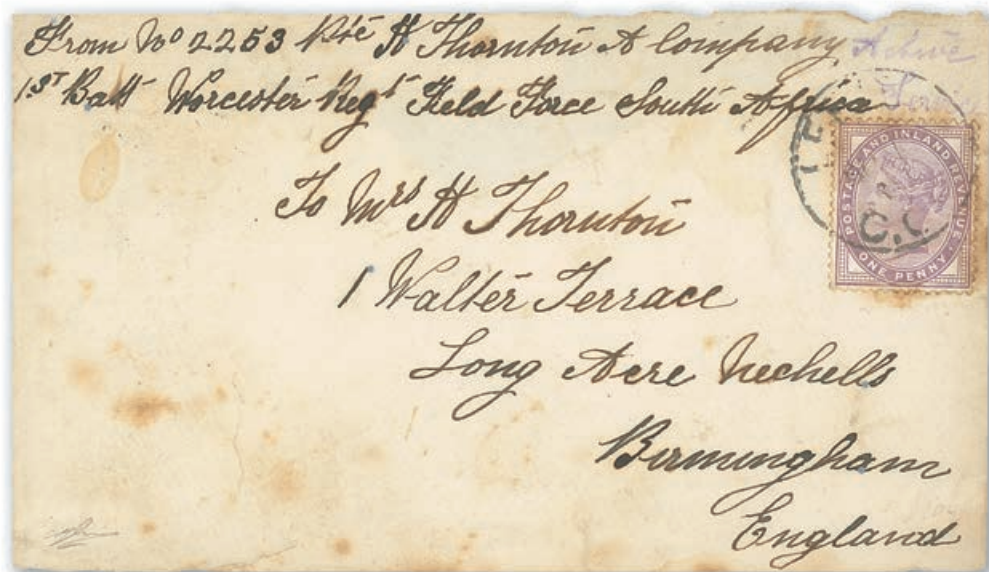 From No 2253 Pte H Thornton A Company Active
1ST Batt Worcester Regt Field Force South Africa Service
POSTAGE AND INLAND REVENUE
ONE PENNY
To Mrs H Thornton
1 Walter Terrace
Long Acre Nechells
Birmingham
England